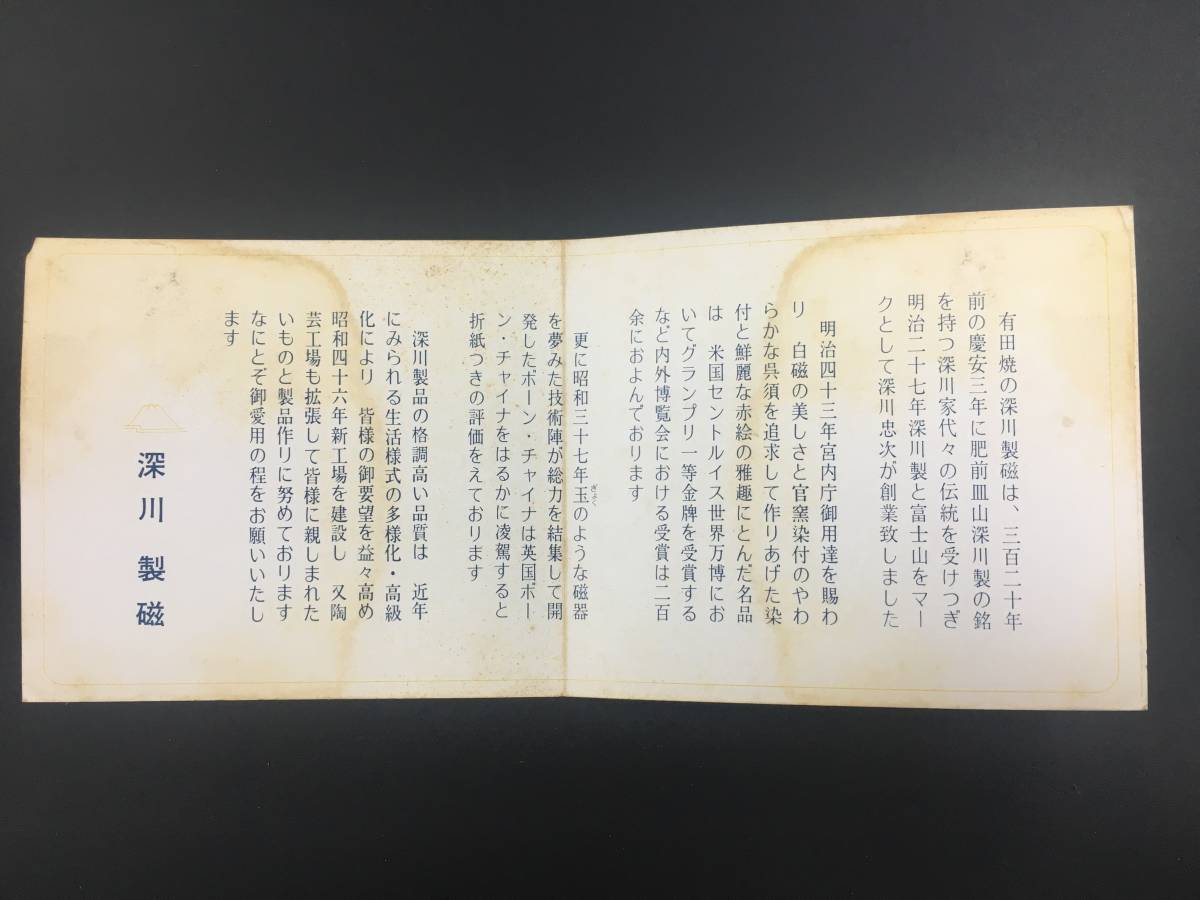 有田焼の深川製磁は、三百二十年
前の慶安三年に肥前皿山深川製の銘
を持つ深川家代々の伝統を受けつぎ
明治二十七年深川製と富士山をマー
クとして深川忠次が創業致しました
明治四十三年宮内庁御用達を賜わ
り 白磁の美しさと官窯染付のやわ
らかな呉須を追求して作りあげた染
付と鮮麗な赤絵の雅趣にとんだ名品
は 米国セントルイス世界万博にお
いてグランプリ一等金牌を受賞する
など内外博覧会における受賞は二百
余におよんでおります
更に昭和三十七年玉のような磁器
ぎょく
を夢みた技術陣が総力を結集して開
発したボーン・チャイナは英国ボー
ン・チャイナをはるかに凌駕すると
折紙つきの評価をえております
深川製品の格調高い品質は 近年
にみられる生活様式の多様化・高級
化により 皆様の御要望を益々高め
昭和四十六年新工場を建設し 又陶
芸工場も拡張して皆様に親しまれた
いものと製品作りに努めております
なにとぞ御愛用の程をお願いいたし
ます
深川製磁